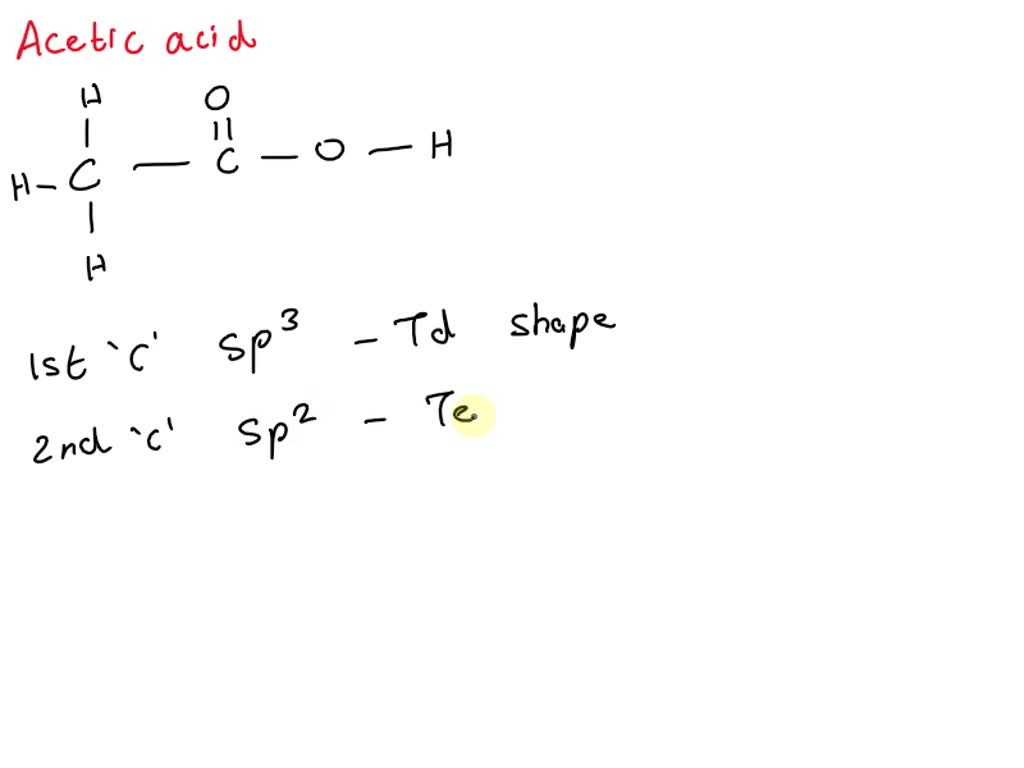 Acetic acid
H O
|| 
H - C — C — O — H
H
1st 'c' Sp³ - Td shape
2nd 'c' Sp² - Te